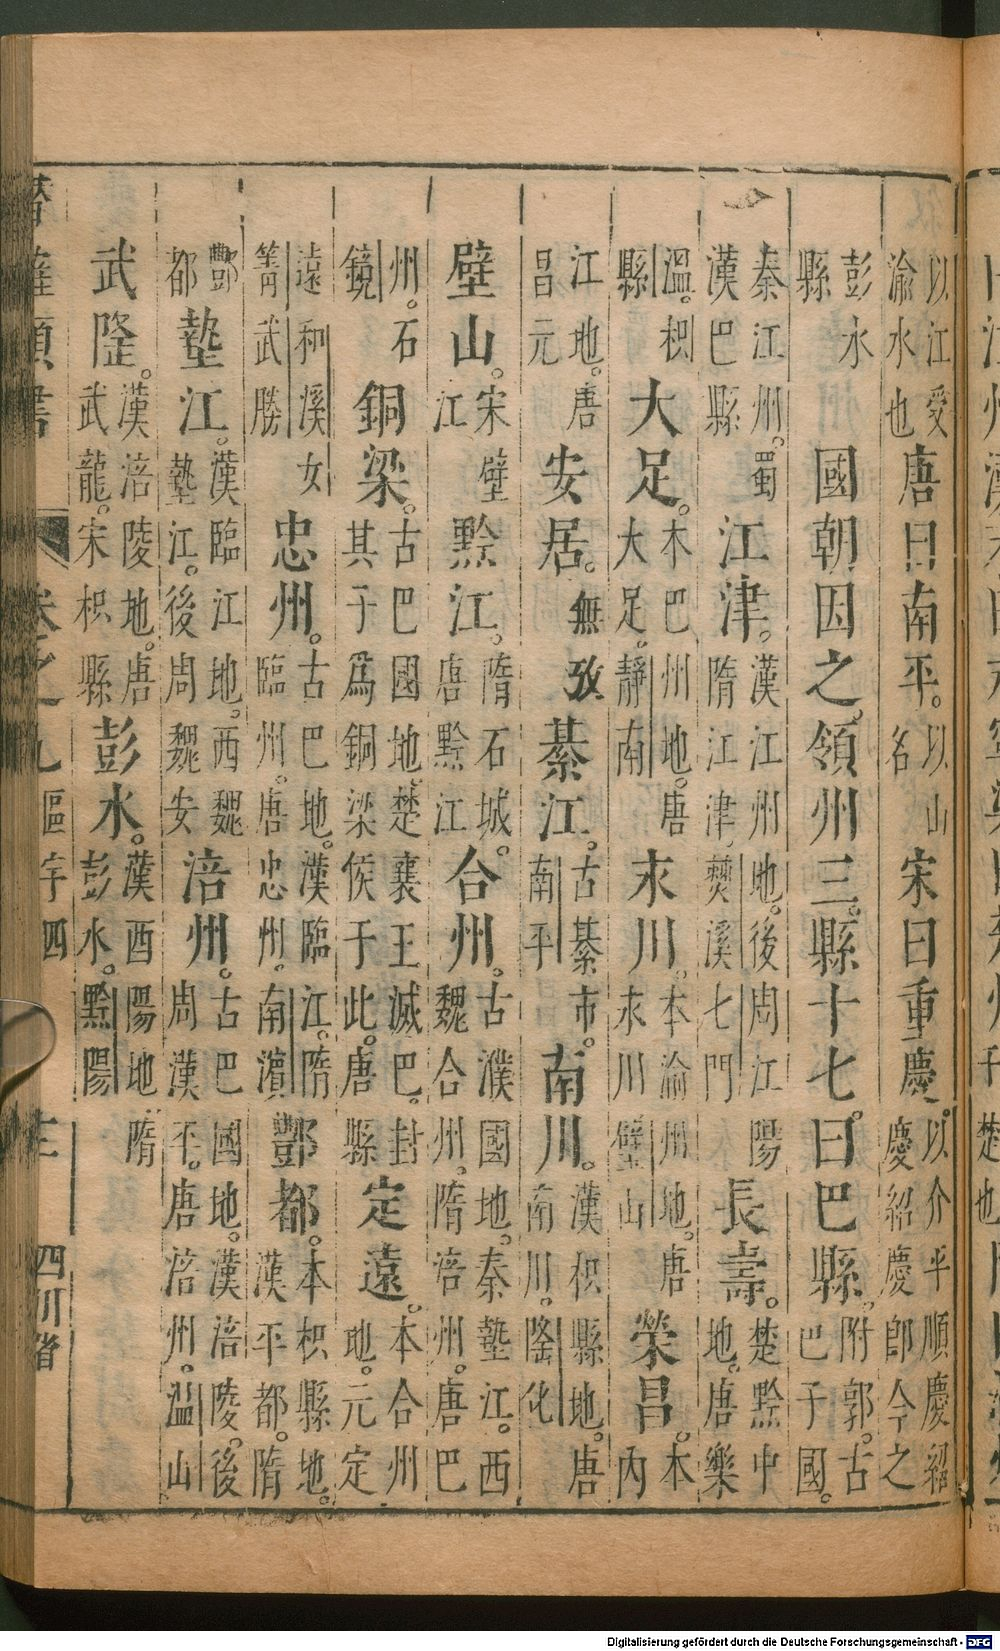 以江受渝水也唐曰南平。以山名宋曰重慶以介乎順慶紹慶紹慶即今之
彭水縣國朝因之。領州三。縣十七。曰巴縣。附郭。古巴子國。
秦江州。蜀漢巴縣江津。漢江州地。後周江陽隋江津、僰溪七門長壽。楚黔中地。唐樂
溫。枳縣大足。本巴州地。唐大足。靜南永川。本渝州地。唐永川璧山榮昌。本內
江地。唐昌元安居。無攷綦江。古綦市。南平南川。漢枳縣地。唐南川。隆化
壁山。宋壁江黔江。隋石城。唐黔江合州。古濮國地。秦墊江。西魏合州。隋涪州。唐巴
州。石鏡銅梁。古巴國地。楚襄王滅巴。封其子為銅梁侯于此。唐縣定遠。本合州地。元定
遠和溪女武勝忠州。古巴地。漢臨江。隋臨州。唐忠州。南濱酆都。本枳縣地。漢平都。隋
酆都墊江。漢臨江地。西魏墊江。後周魏安涪州。古巴國地。漢涪陵。後周漢平。唐涪州。溫山
武隆。漢涪陵地。唐武龍。宋枳縣彭水。漢酉陽地隋彭水。黔陽
潛確類書 卷之九 區宇四 四川省
Digitalisierung gefördert durch die Deutsche Forschungsgemeinschaft - DFG